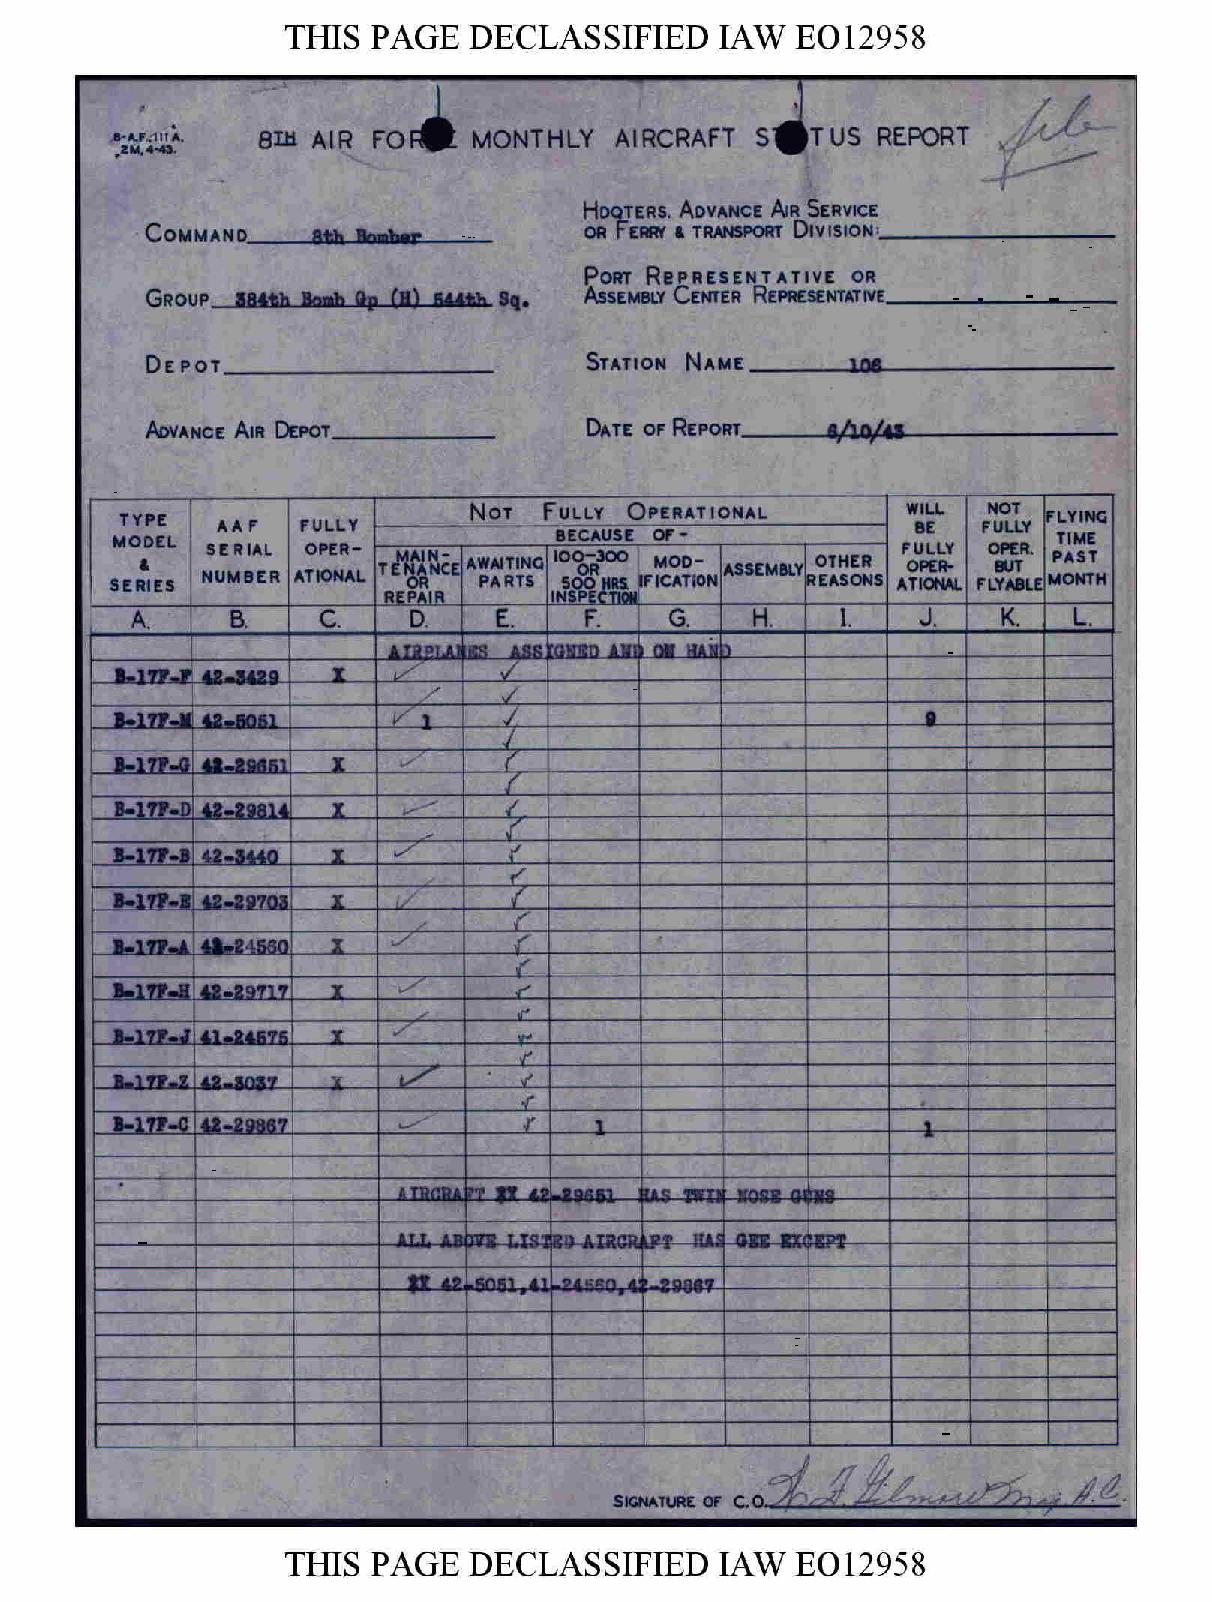 THIS PAGE DECLASSIFIED IAW EO12958
B-A.F.:111A.
2M, 4-43.
8TH AIR FOR E MONTHLY AIRCRAFT ST TUS REPORT
file
COMMAND 8th Bomber
HDQTERS. ADVANCE AIR SERVICE
OR FERRY & TRANSPORT DIVISION:
GROUP 384th Bomb Gp (H) 544th Sq.
PORT REPRESENTATIVE OR
ASSEMBLY CENTER REPRESENTATIVE
DEPOT
STATION NAME 106
ADVANCE AIR DEPOT
DATE OF REPORT 6/10/43
TYPE MODEL & SERIES
AAF SERIAL NUMBER
FULLY OPER-ATIONAL
NOT FULLY OPERATIONAL
BECAUSE OF -
MAIN-TENANCE OR REPAIR
AWAITING PARTS
100-300 OR 500 HRS. INSPECTION
MOD-IFICATION
ASSEMBLY
OTHER REASONS
WILL BE FULLY OPER-ATIONAL
NOT FULLY OPER. BUT FLYABLE
FLYING TIME PAST MONTH
A. B. C. D. E. F. G. H. I. J. K. L.
AIRPLANES ASSIGNED AND ON HAND
B-17F-F 42-3429 X
B-17F-M 42-5051 1 9
B-17F-G 42-29651 X
B-17F-D 42-29814 X
B-17F-B 42-3440 X
B-17F-E 42-29703 X
B-17F-A 41-24560 X
B-17F-H 42-29717 X
B-17F-J 41-24575 X
B-17F-Z 42-3037 X
B-17F-C 42-29867 1 1
AIRCRAFT XX 42-29651 HAS TWIN NOSE GUNS
ALL ABOVE LISTED AIRCRAFT HAS GEE EXCEPT
XX 42-5051,41-24560,42-29867
SIGNATURE OF C.O. W F Gilmore Maj A.C.
THIS PAGE DECLASSIFIED IAW EO12958